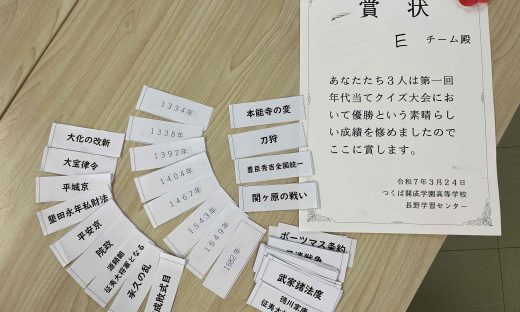 賞状
E チーム殿
あなたたち３人は第一回
年代当てクイズ大会にお
いて優勝という素晴らし
い成績を修めましたので
ここに賞します。
令和７年３月２４日
つくば開成学園高等学校
長野学習センター
大化の改新
大宝律令
平城京
墾田永年私財法
平安京
院政
源頼朝
征夷大将軍となる
承久の乱
成敗式目
1334年
1338年
1392年
1404年
1467年
1543年
1549年
1582年
本能寺の変
刀狩
豊臣秀吉全国統一
関ヶ原の戦い
ポーツマス条約
武家諸法度
徳川家康